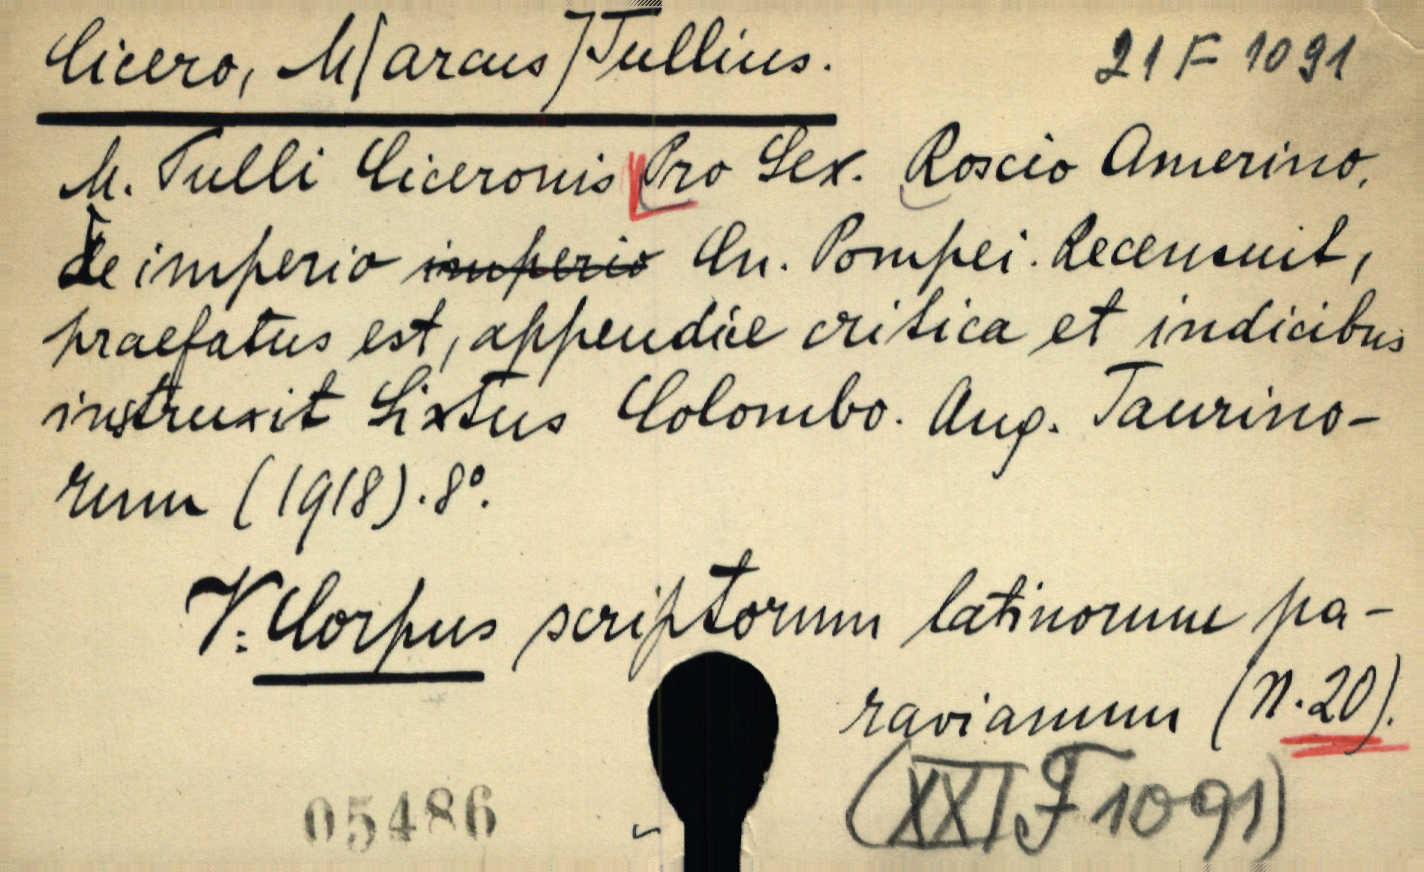 Cicero, M[arcus] Tullius. 21 F 1091
M. Tulli Ciceronis Pro Sex. Roscio Amerino.
De imperio imperio Cn. Pompei. Recensuit,
praefatus est, appendice critica et indicibus
instruxit Sixtus Colombo. Aug. Taurino-
rum (1918). 8°.
V: Corpus scriptorum latinorum pa-
ravianum (n. 20).
05486 (XXI F 1091)